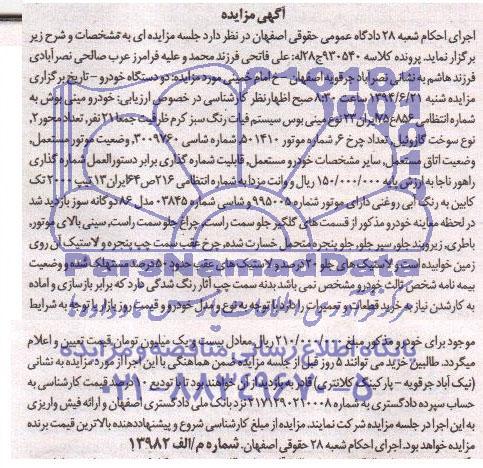 آگهی مزایده
اجرای احکام شعبه ۲۸ دادگاه عمومی حقوقی اصفهان در نظر دارد جلسه مزایده ای به مشخصات و شرح زیر
برگزار نماید. پرونده کلاسه ۹۳۰۵۴۰ج۲۸له: علی فاتحی فرزند محمد و علیه فرامرز عرب صالحی نصرآبادی
فرزند هاشم به نشانی نصرآباد جرقویه اصفهان - خ امام خمینی مورد مزایده: دو دستگاه خودرو - تاریخ برگزاری
مزایده شنبه ۱۳۹۴/۶/۲۱ ساعت ۸:۳۰ صبح اظهارنظر کارشناسی در خصوص ارزیابی: خودرو مینی بوس به
شماره انتظامی ۸۵۶ع۷۵ایران۲۳ نوع مینی بوس سیستم فیات رنگ سبز کرم ظرفیت جمعا۲۱ نفر، تعداد محور۲،
نوع سوخت گازوئیل، تعداد چرخ ۶، شماره موتور ۵۰۱۴۱۰، شماره شاسی ۳۰۰۹۷۶۰، وضعیت موتور مستعمل،
وضعیت اتاق مستعمل، سایر مشخصات خودرو مستعمل، قابلیت شماره گذاری برابر دستورالعمل شماره گذاری
راهور ناجا به ارزش پایه ۱۵۰/۰۰۰/۰۰۰ ریال و وانت مزدا به شماره انتظامی ۲۱۶ص۶۴ایران۱۳ تیپ ۲۰۰۰ تک
کابین به رنگ آبی روغنی دارای موتور شماره ۹۹۵۰۰۵ و شاسی شماره ۰۳۸۴۵ مدل ۸۶ دوگانه سوز بازدید شد
در لحظه معاینه خودرو مذکور از قسمت های گلگیر جلو سمت راست، چراغ جلو سمت راست, سینی بالای موتور،
باطری، زیربند جلو، سپر جلو، جلو پنجره متحمل خسارت شده, چرخ عقب سمت چپ پنچره و لاستیک آن روی
زمین خوابیده است و لاستیک های جلو ۲۰درصد و لاستیک های عقب حدود ۵۰درصد مستهلک شده و وضعیت
بیمه نامه شخص ثالث خودرو مشخص نمی باشد بدنه سمت چپ آثار رنگ شدگی دارد که برابر بازسازی و آماده
به کارشدن نیاز به خرید قطعات و تعمیرات را دارد با توجه به نوع و مدل خودرو و قیمت روز بازار با توجه به شرایط
موجود برای خودرو مذکور مبلغ ۲۱۰/۰۰۰/۰۰۰ ریال معادل بیست و یک میلیون تومان قیمت تعیین و اعلام
میگردد. طالبین خرید می توانند ۵ روز قبل از جلسه مزایده ضمن هماهنگی با این اجرا از مورد مزایده به نشانی
(نیک آباد جرقویه - پارکینگ کلانتری) قادر به بازدید از آن خواهند بود تا با تودیع ۱۰درصد قیمت کارشناسی به
حساب سپرده دادگستری به شماره ۲۱۷۱۲۹۰۲۱۰۰۰۸ نزد بانک ملی دادگستری اصفهان و ارائه فیش واریزی
به این اجرا در جلسه مزایده شرکت نمایند. مزایده از مبلغ کارشناسی شروع و پیشنهاددهنده بالاترین قیمت برنده
مزایده خواهد بود. اجرای احکام شعبه ۲۸ حقوقی اصفهان. شماره م/الف ۱۳۹۸۲
ParsNamadData
پایگاه اطلاع رسانی مناقصه و مزایده
۰۲۱-۸۸۳۴۹۶۷۰-۵